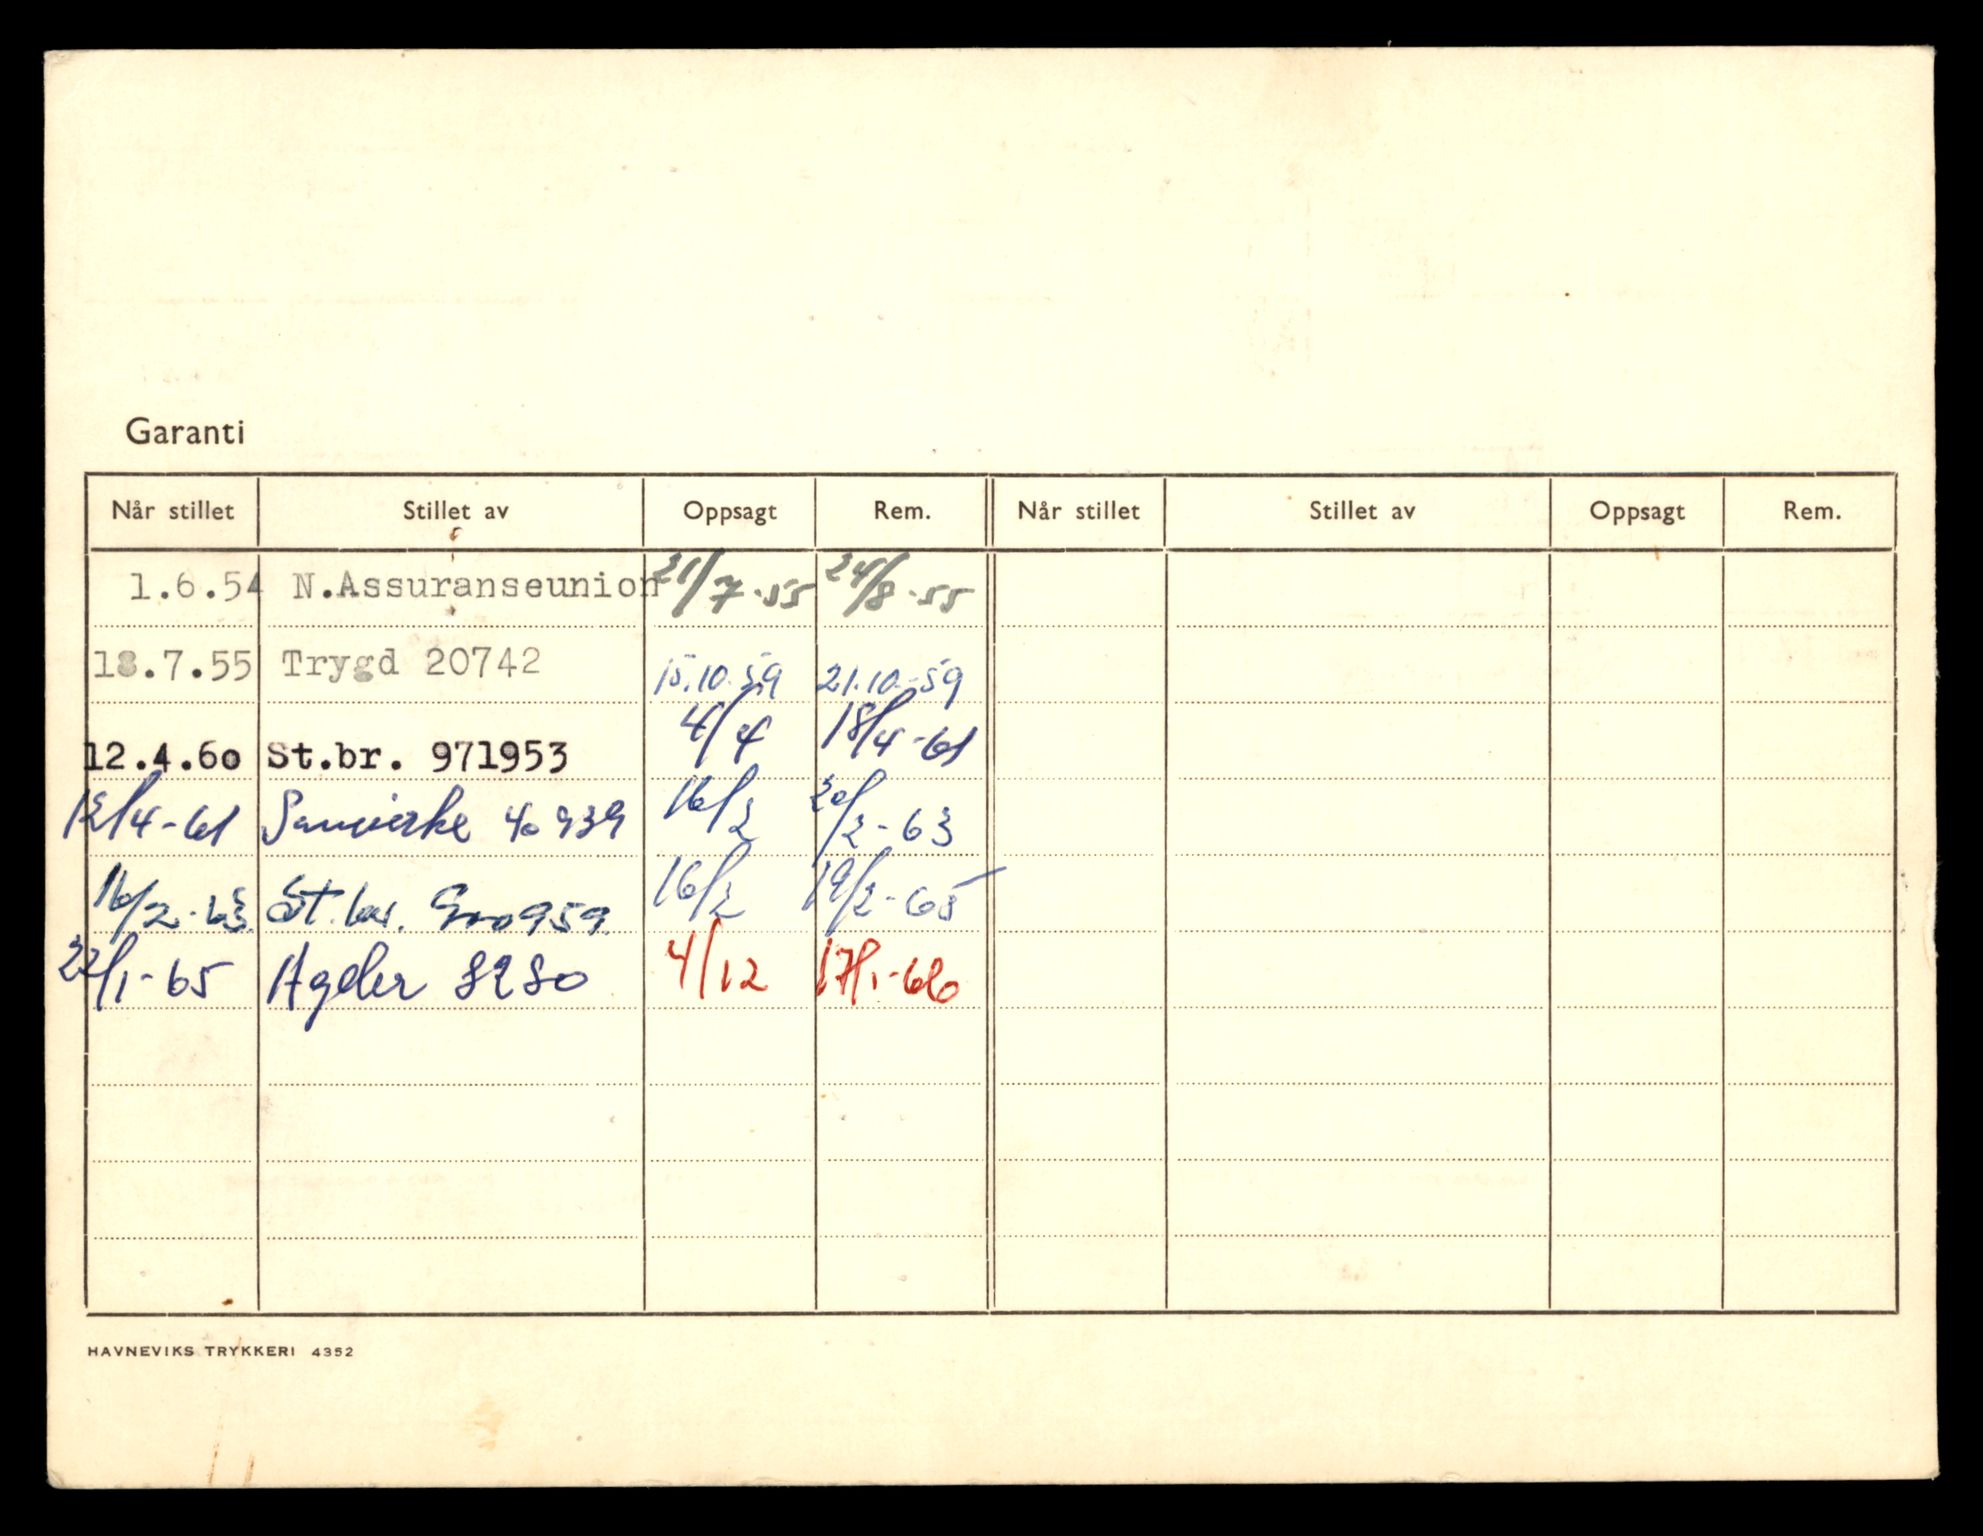 Garanti
Når stillet Stillet av Oppsagt Rem. Når stillet Stillet av Oppsagt Rem.
1.6.54 N.Assuranseunion 21/7-55 24/8-55
18.7.55 Trygd 20742 15.10.59 21.10.-59
12.4.60 St.br. 971953 4/4 18/4-61
12/4-61 Samvirke 40939 16/2 20/2-63
16/2-63 St.br. 16/2 19/2-65
22/1-65 Agder 8280 4/12 17/1-66
HAVNEVIKS TRYKKERI 4352